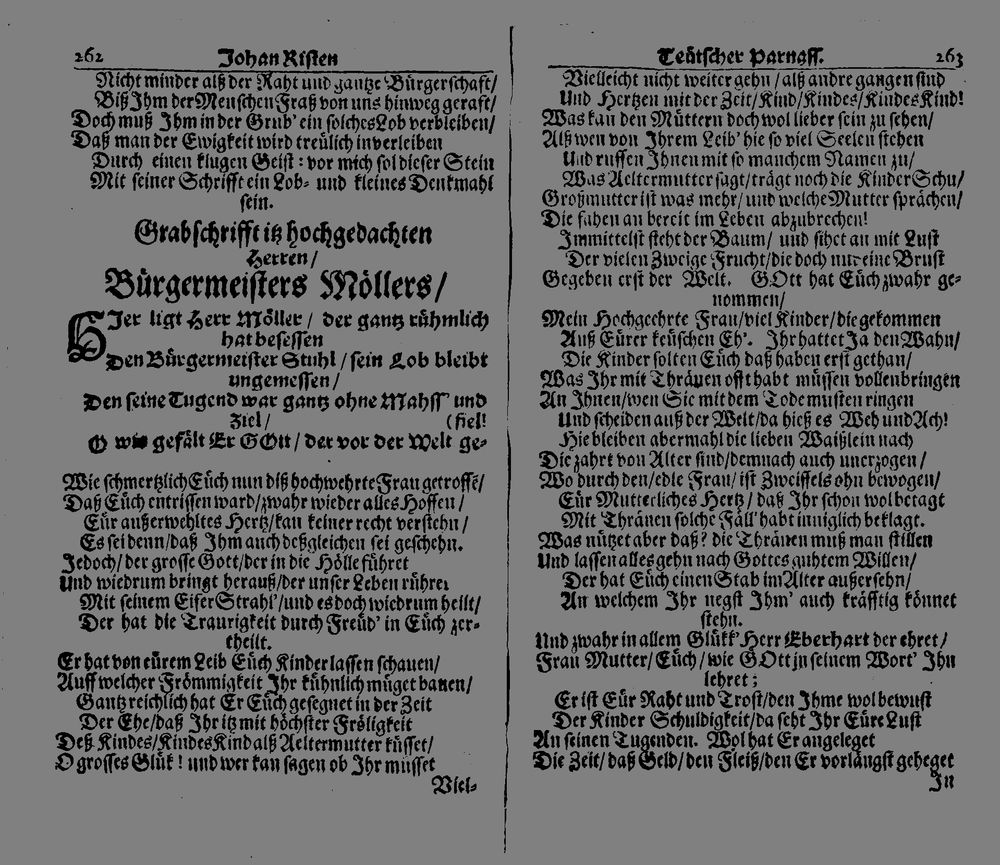 262 Johan Risten
Nicht minder alß der Raht und gantze Bürgerschaft/
Biß Ihm der Menschen Fraß von uns hinweg geraft/
Doch muß Ihm in der Grub' ein solches Lob verbleiben/
Daß man der Ewigkeit wird treülich inverleiben
Durch einen klugen Geist: vor mich sol dieser Stein
Mit seiner Schrifft ein Lob- und kleines Denkmahl
sein.
Grabschrifft itz hochgedachten
Herren/
Bürgermeisters Möllers/
HJer ligt Herr Möller/ der gantz rühmlich
hat besessen
Den Bürgermeister Stuhl/ sein Lob bleibt
ungemessen/
Den seine Tugend war gantz ohne Mahss' und
Ziel/ (fiel!
O wie gefält Er GOtt/ der vor der Welt ge-
Wie schmertzlich Eüch nun diß hochwehrte Frau getroffē/
Daß Eüch entrissen ward/ zwahr wieder alles Hoffen/
Eür außerwehltes Hertz/ kan keiner recht verstehn/
Es sei denn/ daß Ihm auch deßgleichen sei geschehn.
Jedoch/ der grosse Gott/ der in die Hölle führet
Und wiedrum bringt herauß/ der unser Leben rühret
Mit seinem Eifer Strahl'/ und es doch wiedrum heilt/
Der hat die Traurigkeit durch Freüd' in Eüch zer-
theilt.
Er hat von eürem Leib Eüch Kinder lassen schauen/
Auff welcher Frömmigkeit Ihr kühnlich müget bauen/
Gantz reichlich hat Er Eüch gesegnet in der Zeit
Der Ehe/ daß Ihr itz mit höchster Fröligkeit
Deß Kindes/ Kindes Kind alß Aeltermutter küsset/
O grosses Glük! und wer kan sagen ob Ihr müsset
Viel-
Teütscher Parnass. 263
Vielleicht nicht weiter gehn/ alß andre gangen sind
Und Hertzen mit der Zeit/ Kind/ Kindes/ Kindes Kind!
Was kan den Müttern doch wol lieber sein zu sehen/
Alß wen von Ihrem Leib' hie so viel Seelen stehen
Und ruffen Ihnen mit so manchem Namen zu/
Was Aeltermutter sagt/ trägt noch die Kinder Schu/
Großmutter ist was mehr/ und welche Mutter sprächen/
Die sahen an bereit im Leben abzubrechen!
Immittelst steht der Baum/ und sihet an mit Lust
Der vielen Zweige Frucht/ die doch nur eine Brust
Gegeben erst der Welt. GOtt hat Eüch zwahr ge-
nommen/
Mein Hochgeehrte Frau/ viel Kinder/ die gekommen
Auß Eürer keüschen Eh'. Ihr hattet Ja den Wahn/
Die Kinder solten Eüch daß haben erst gethan/
Was Ihr mit Thränen offt habt müssen vollenbringen
An Ihnen/ wen Sie mit dem Tode musten ringen
Und scheiden auß der Welt/ da hieß es Weh und Ach!
Hie bleiben abermahl die lieben Waißlein nach
Die zahrt von Alter sind/ demnach auch unerzogen/
Wo durch den/ edle Frau/ ist Zweiffels ohn bewogen/
Eür Mutterliches Hertz/ daß Ihr schon wol betagt
Mit Thränen solche Fäll' habt inniglich beklagt.
Was nützet aber daß? die Thränen muß man stillen
Und lassen alles gehn nach Gottes guhtem Willen/
Der hat Eüch einen Stab im Alter außersehn/
An welchem Ihr negst Ihm' auch kräfftig könnet
stehn.
Und zwahr in allem Glükk' Herr Eberhart der ehret/
Frau Mutter/ Eüch/ wie GOtt in seinem Wort' Ihn
lehret;
Er ist Eür Raht und Trost/ den Ihme wol bewust
Der Kinder Schuldigkeit/ da seht Ihr Eüre Lust
An seinen Tugenden. Wol hat Er angeleget
Die Zeit/ daß Geld/ den Fleiß/ den Er vorlängst geheget
In